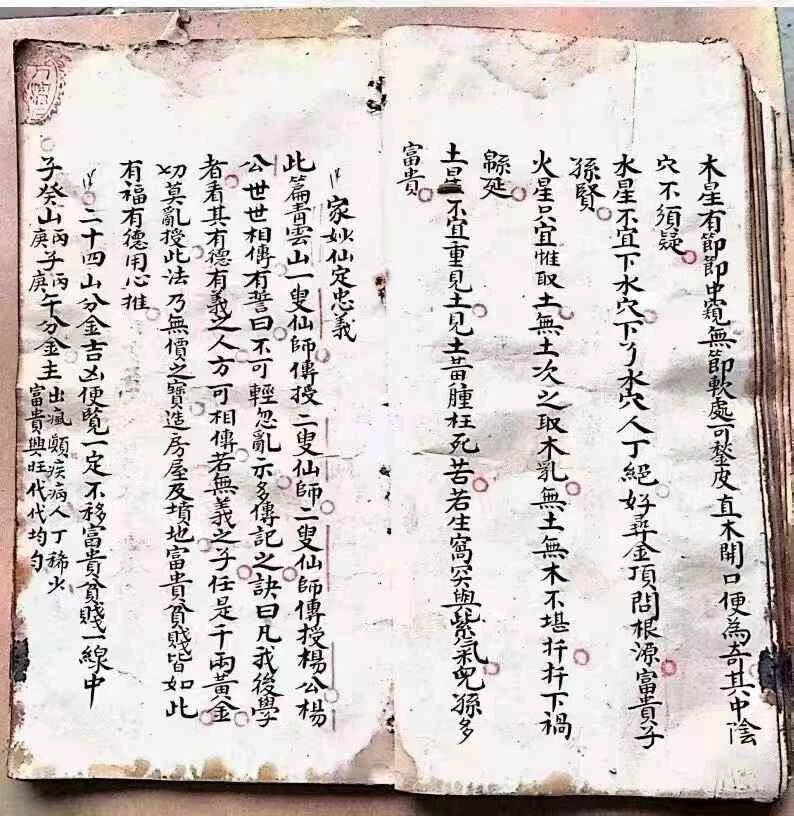 木星有節節中窺無節軟處可鑿皮直木開口便為奇其中陰
穴不須疑
水星不宜下水穴下了水穴人丁絕好尋金頂問根源富貴子
孫賢
火星只宜惟取土無土次之取木乳無土無木不堪扦扦下禍
緜延
土星不宜重見土見土黃腫枉死苦若生窩突與紫氣兒孫多
富貴
家妙仙定忠義
此篇青雲山一叟仙師傳授二叟仙師二叟仙師傳授楊公楊
公世世相傳有誓曰不可輕忽亂示多傳記之訣曰凡我後學
者看其有德有義之人方可相傳若無義之子任是千兩黃金
切莫亂授此法乃無價之寶造房屋及墳地富貴貧賤皆如此
有福有德用心推
二十四山分金吉凶便覧一定不移富貴貧賤一線中
子癸山丙子丙午分金主出瘋顛疾病人丁稀少
庚庚富貴興旺代代均勻